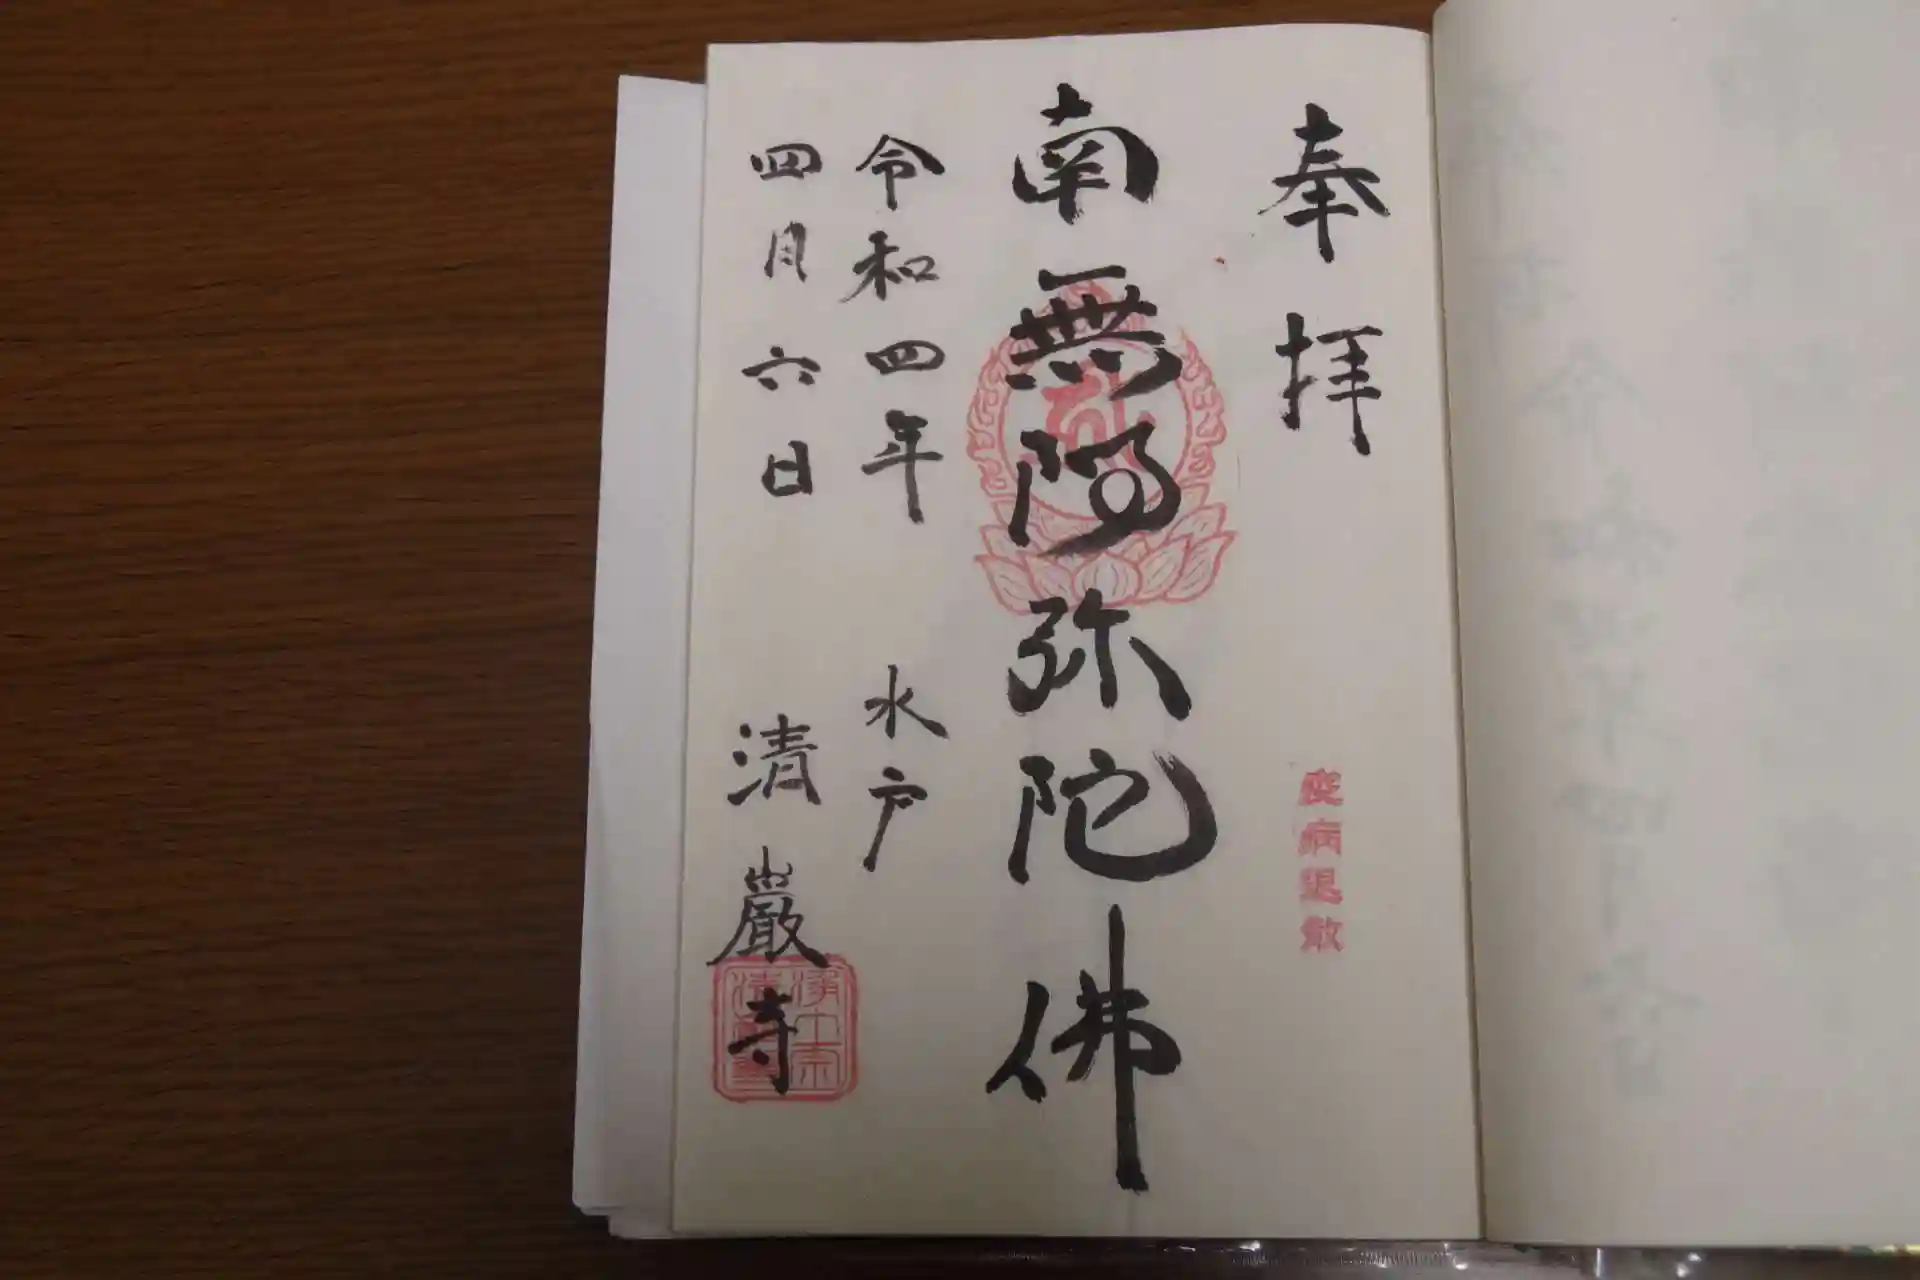 奉拝
疫病退散
南無阿弥陀佛
令和四年 水戸
四月六日 清巖寺
浄土宗